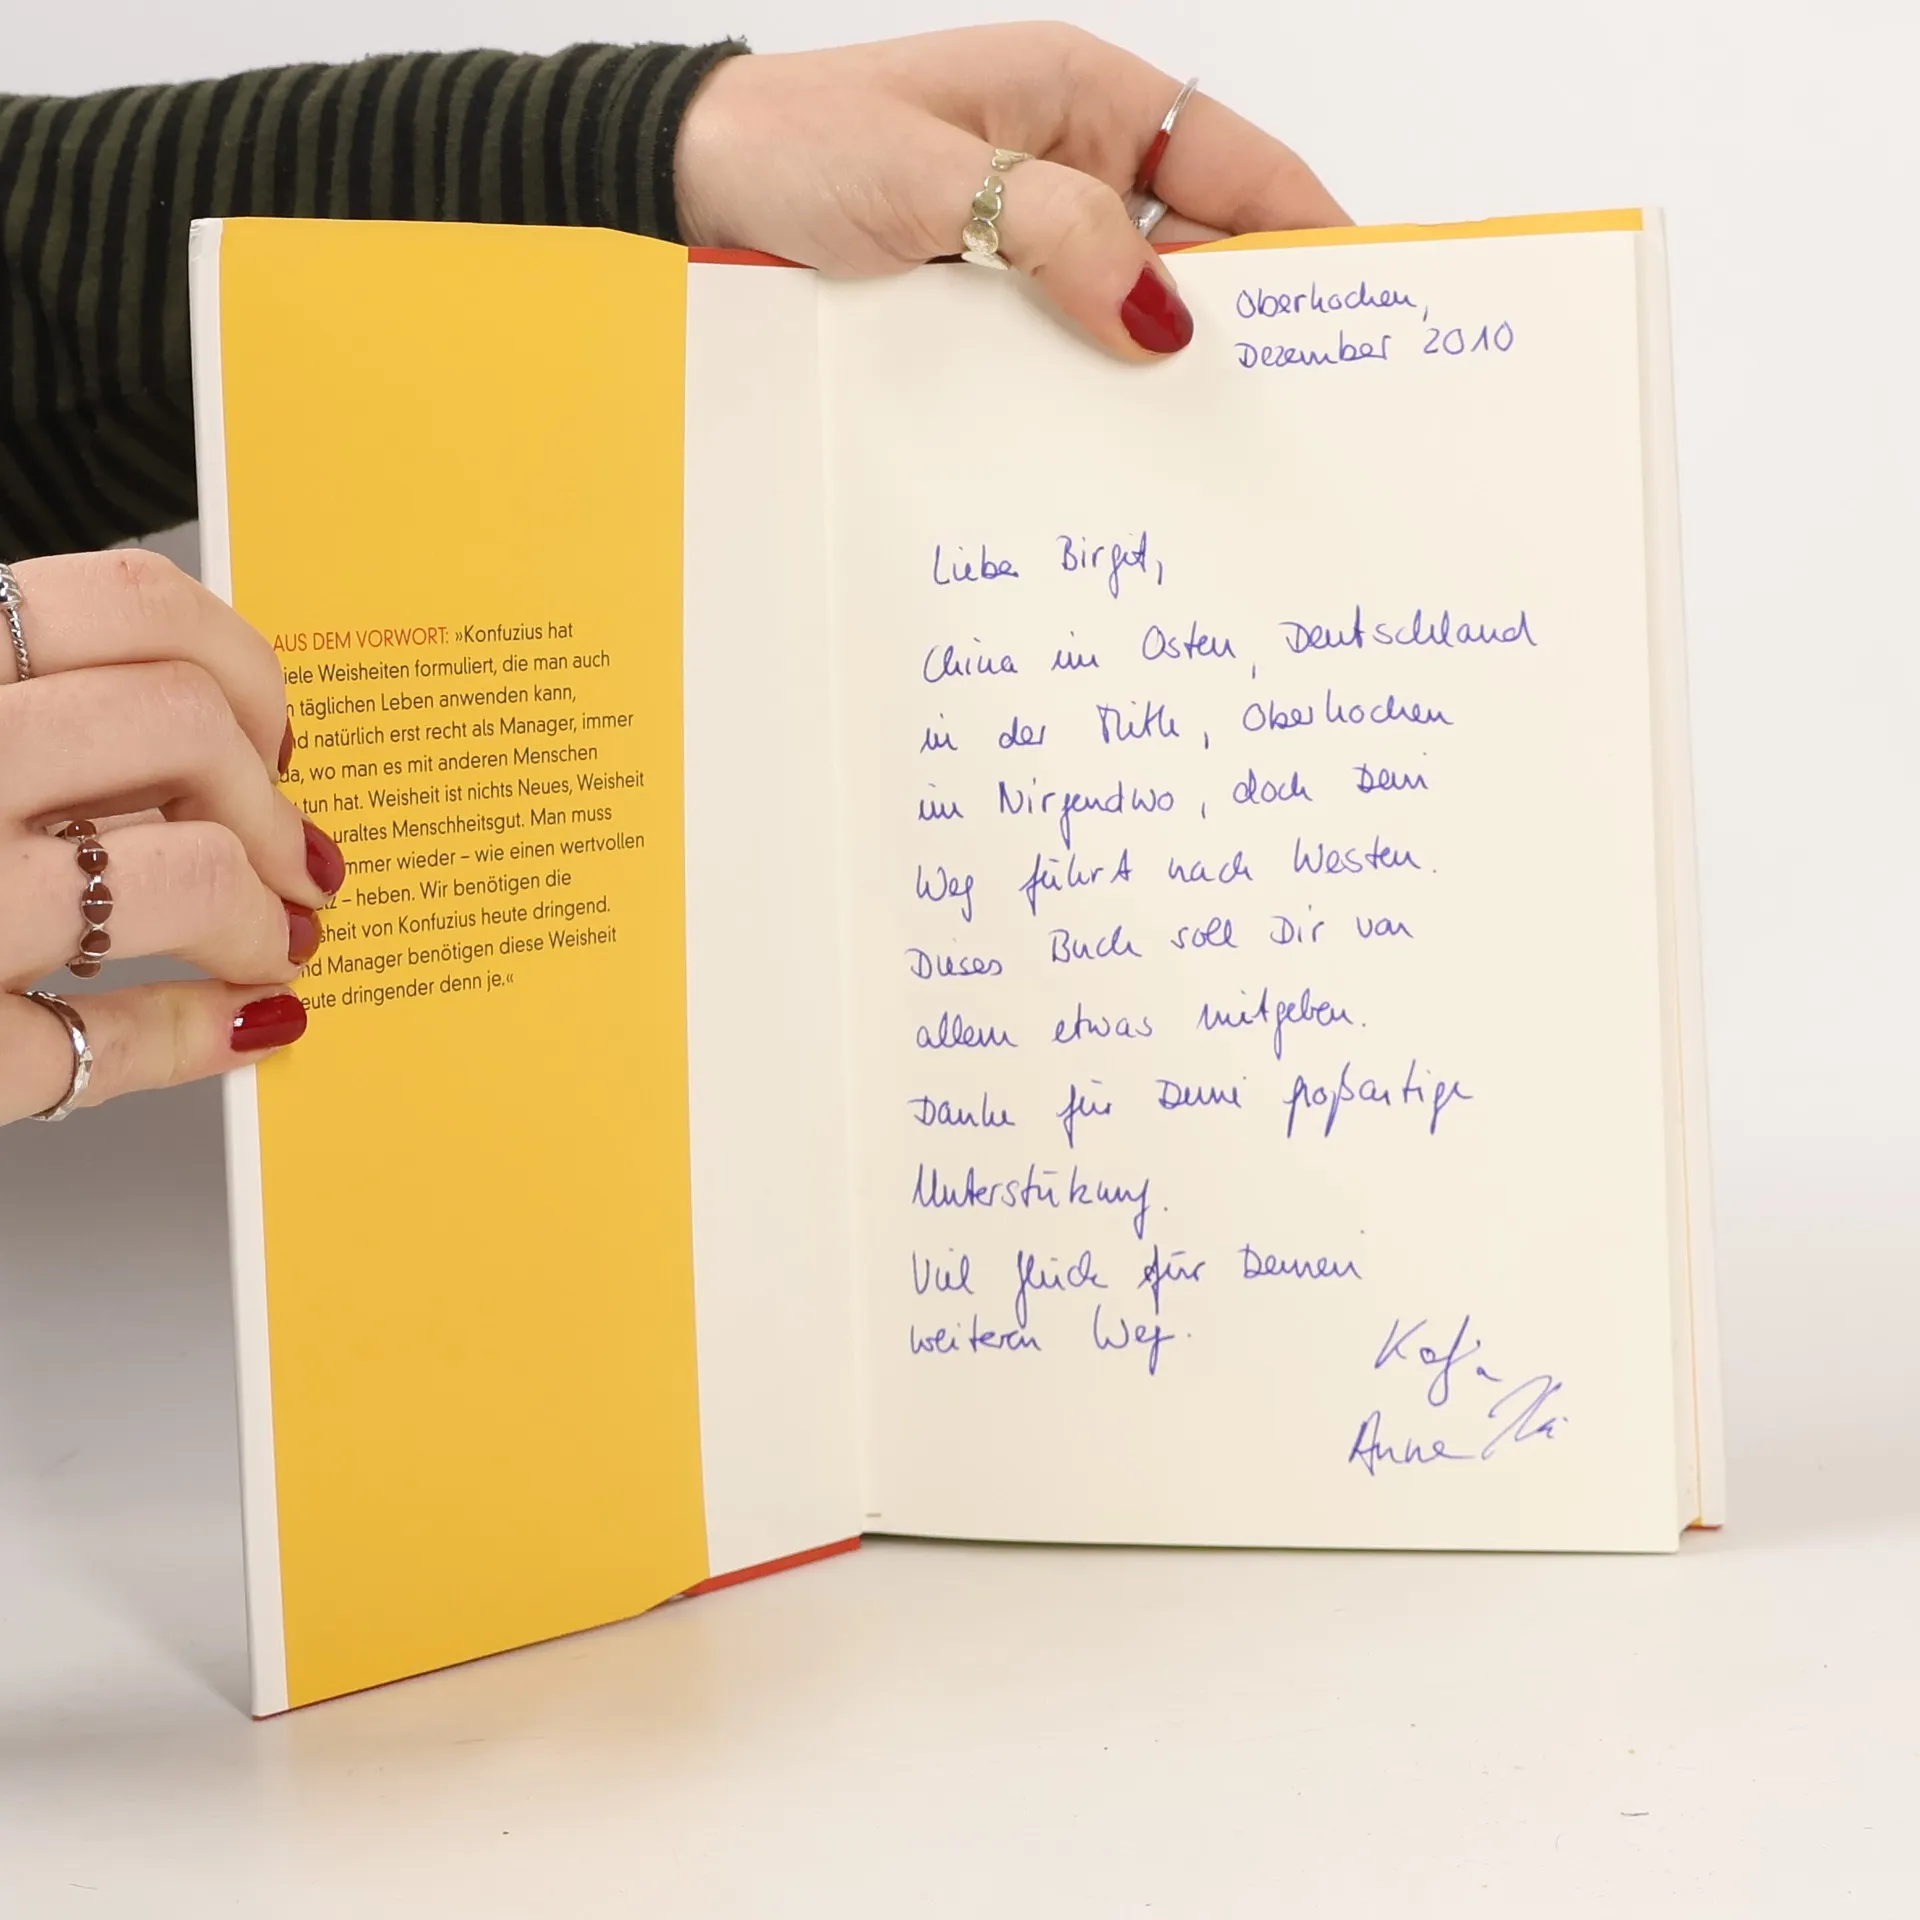 AUS DEM VORWORT: »Konfuzius hat
iele Weisheiten formuliert, die man auch
täglichen Leben anwenden kann,
d natürlich erst recht als Manager, immer
da, wo man es mit anderen Menschen
tun hat. Weisheit ist nichts Neues, Weisheit
uraltes Menschheitsgut. Man muss
mmer wieder – wie einen wertvollen
tz – heben. Wir benötigen die
sheit von Konfuzius heute dringend.
nd Manager benötigen diese Weisheit
eute dringender denn je.«
Oberkochen,
Dezember 2010
Liebe Birgit,
China im Osten, Deutschland
in der Mitte, Oberkochen
im Nirgendwo, doch Dein
Weg führt nach Westen.
Dieses Buch soll Dir von
allem etwas mitgeben.
Danke für Deine großartige
Unterstützung.
Viel Glück für Deinen
weiteren Weg.
Katja
Anne